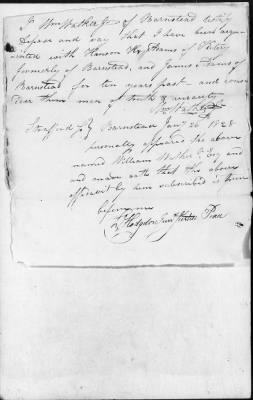 I Wm Walker Jr of Barnstead testify
depose and say that I have been acqu-
ainted with Hanson Hoyt of
formerly of Barnstead, and James of
Barnstead for ten years past - and consi-
der them men of truth & veracity
Wm Walker Jr
Strafford ss Barnstead Jany 26 1828
personally appeared the above
named William Walker Jr Esq and
and made oath that the above
affidavit by him subscribed is true
before me
Hodgdon Junr Justice Peace